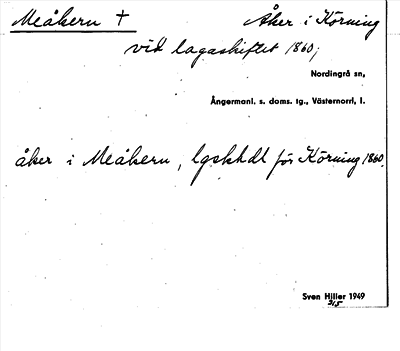 Meåkern † Åker i Körning
vid lagaskiftet 1860;
Nordingrå sn,
Ångermanl. s. doms. tg., Västernorrl. l.
åker i Meåkern, lgskhdl för Körning 1860.
Sven Hiller 1949
215